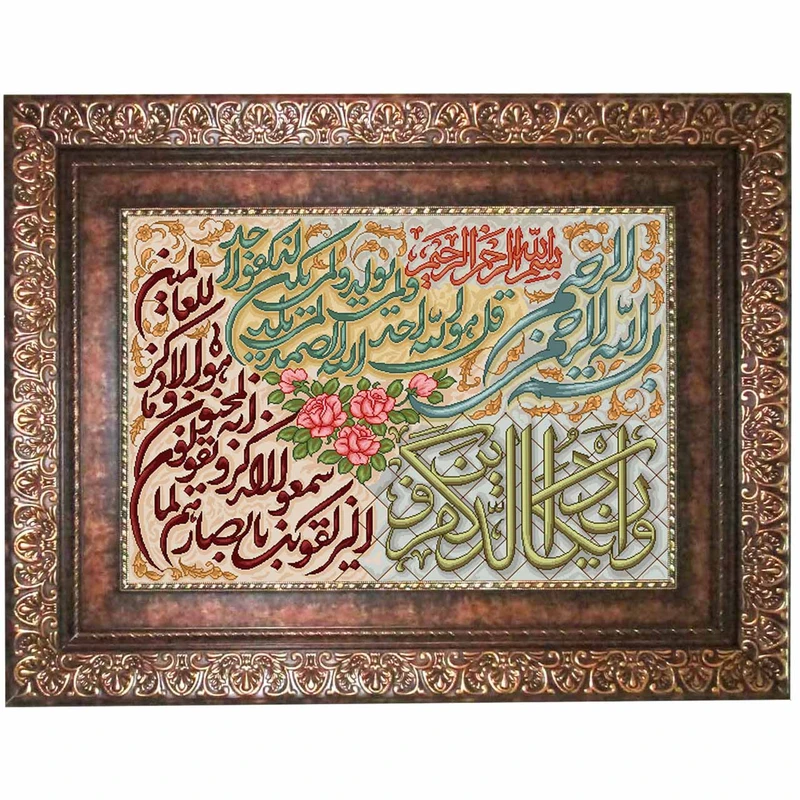 بسم الله الرحمن الرحیم
بسم الله الرحمن الرحیم
قل هو الله احد الله الصمد لم یلد
ولم یولد ولم یکن له کفوا احد
وان یکاد الذین کفروا
لیزلقونک بابصارهم لما
سمعوا الذکر ویقولون
انه لمجنون وما
هو الا ذکر
للعالمین